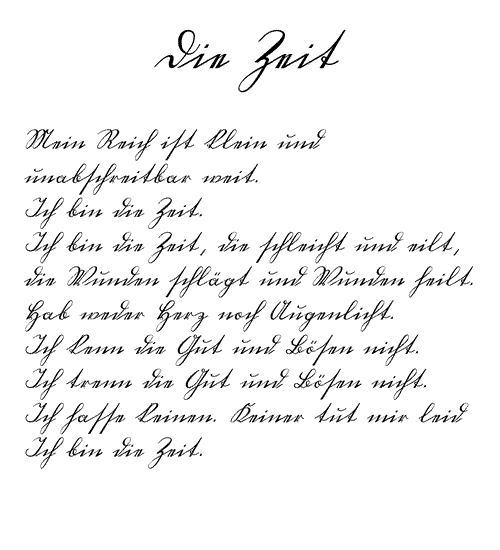 Die Zeit
Mein Reich ist klein und
unabschreitbar weit.
Ich bin die Zeit.
Ich bin die Zeit, die schleicht und eilt,
die Wunden schlägt und Wunden heilt.
Hab weder Herz noch Augenlicht.
Ich kenn die Gut und Bösen nicht.
Ich trenn die Gut und Bösen nicht.
Ich hasse keinen. Keiner tut mir leid
Ich bin die Zeit.